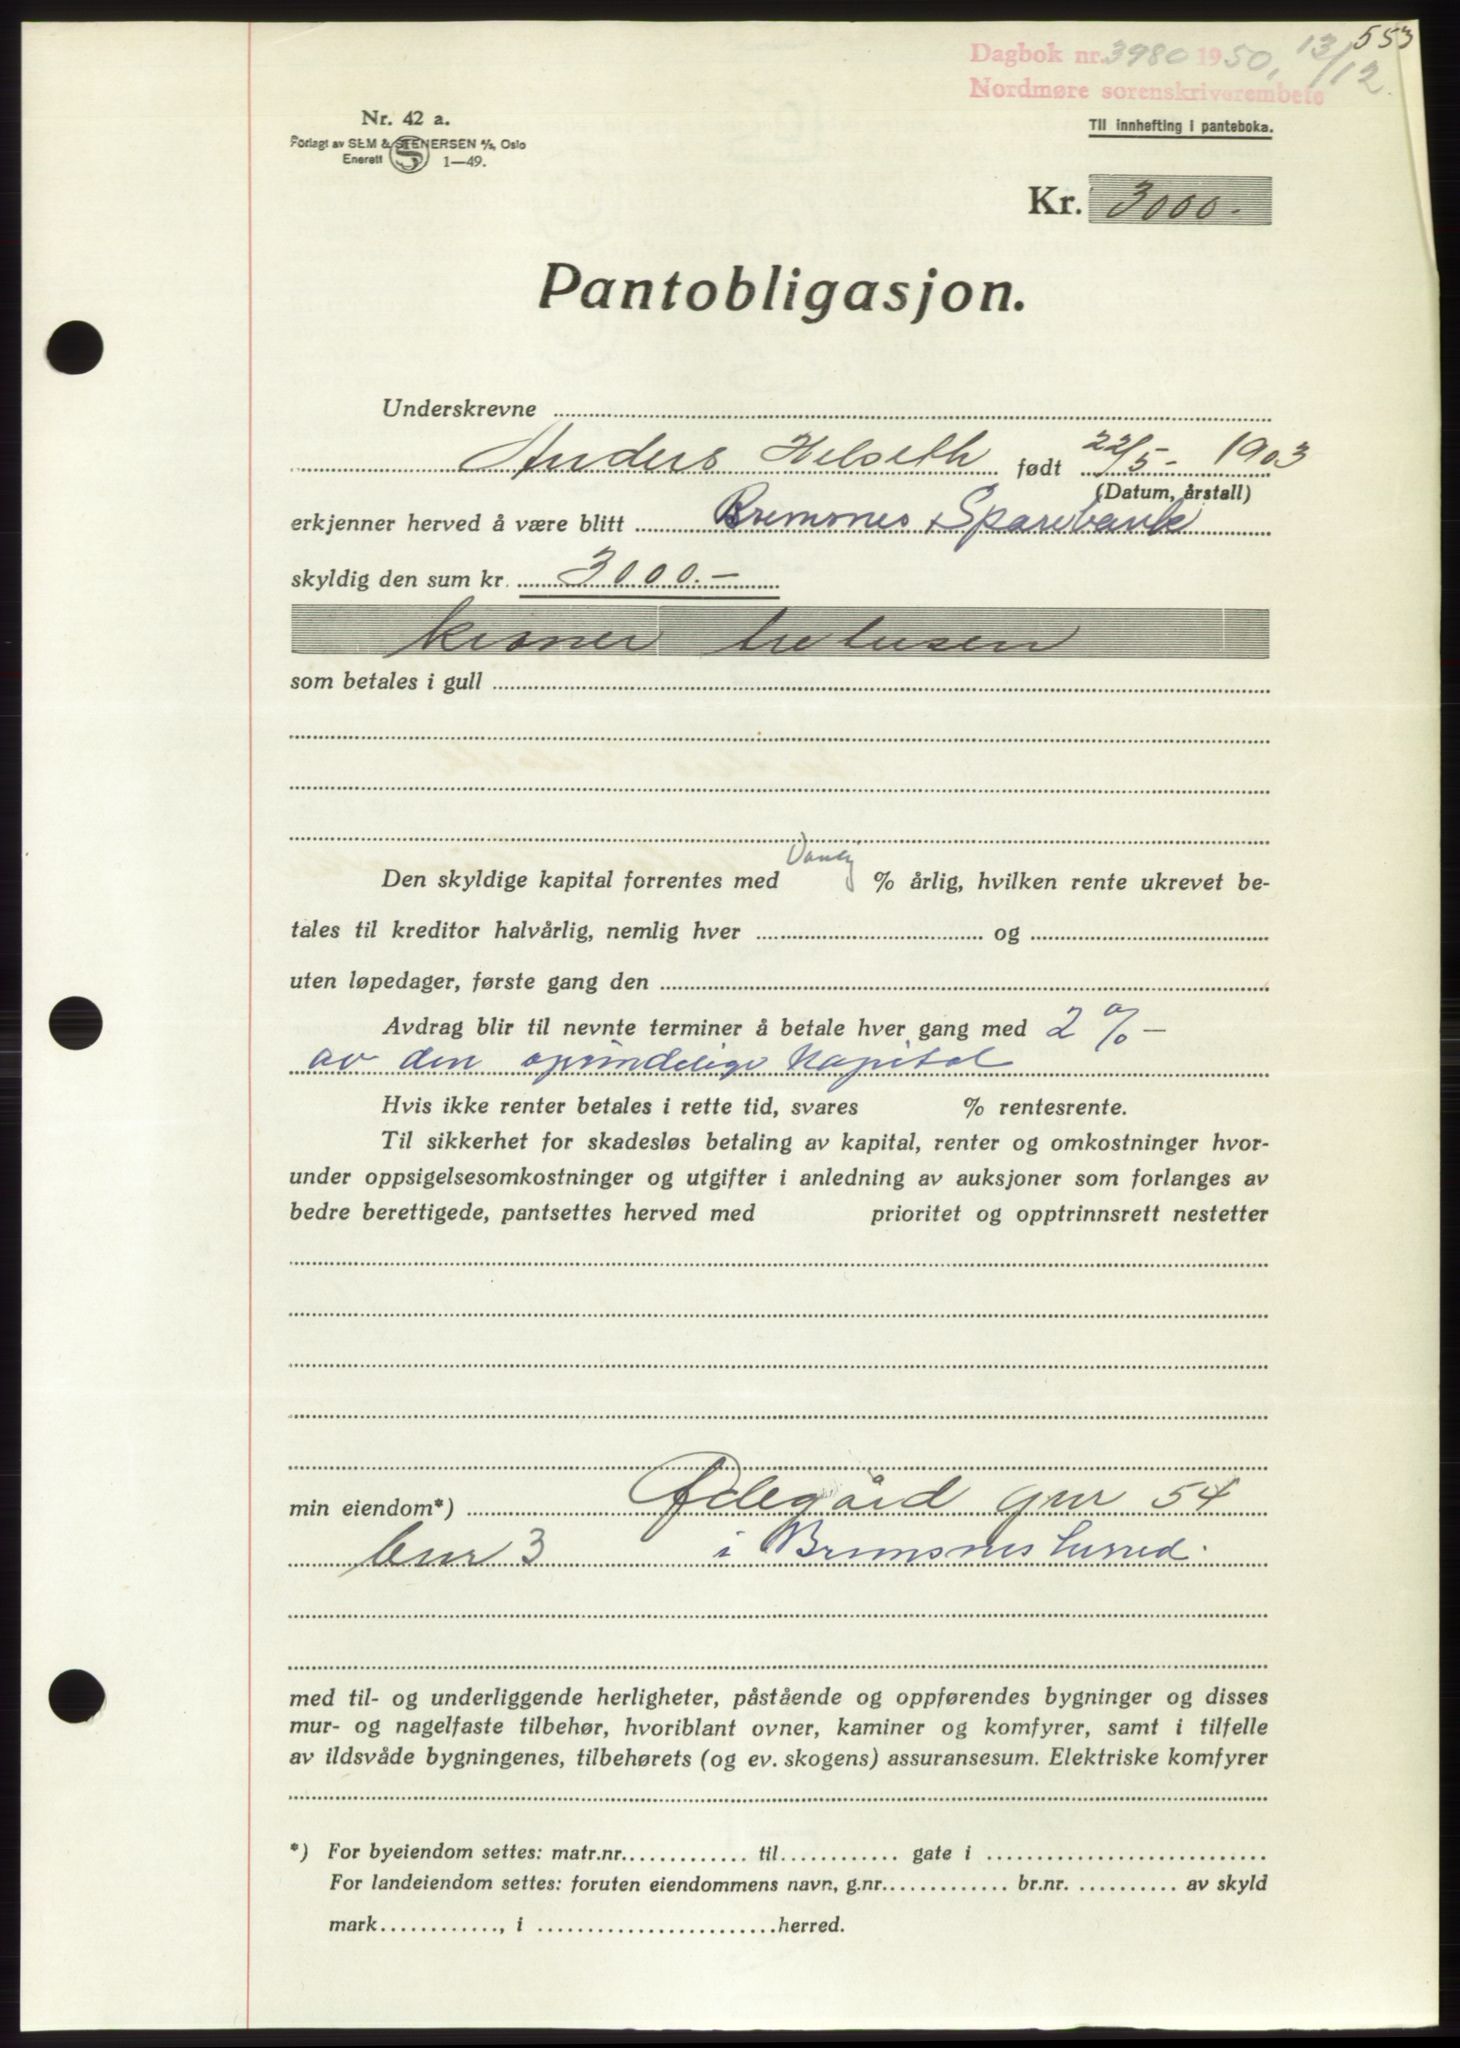 553
Dagbok nr. 3980 1950, 13/12.
Nordmøre sorenskriverembete
Nr. 42 a.
Til innhefting i panteboka.
Forlagt av SEM & STENERSEN A/S, Oslo
Enerett S 1—49.
Kr. 3000.-
Pantobligasjon.
Underskrevne
Anders Helseth født 22/5 - 1903
(Datum, årstall)
erkjenner herved å være blitt Bremsnes Sparebank
skyldig den sum kr. 3000.-
kroner tretusen
som betales i gull
Den skyldige kapital forrentes med % årlig, hvilken rente ukrevet be-
tales til kreditor halvårlig, nemlig hver og
uten løpedager, første gang den
Avdrag blir til nevnte terminer å betale hver gang med 2 % -
av den oprindelige Kapital
Hvis ikke renter betales i rette tid, svares % rentesrente.
Til sikkerhet for skadesløs betaling av kapital, renter og omkostninger hvor-
under oppsigelsesomkostninger og utgifter i anledning av auksjoner som forlanges av
bedre berettigede, pantsettes herved med prioritet og opptrinnsrett nestetter
min eiendom*) Ødegård gnr 54
bnr 3 i Bremsnes herred.
med til- og underliggende herligheter, påstående og oppførendes bygninger og disses
mur- og nagelfaste tilbehør, hvoriblant ovner, kaminer og komfyrer, samt i tilfelle
av ildsvåde bygningenes, tilbehørets (og ev. skogens) assuransesum. Elektriske komfyrer
*) For byeiendom settes: matr.nr. til gate i
For landeiendom settes: foruten eiendommens navn, g.nr. br.nr. av skyld
mark , i herred.